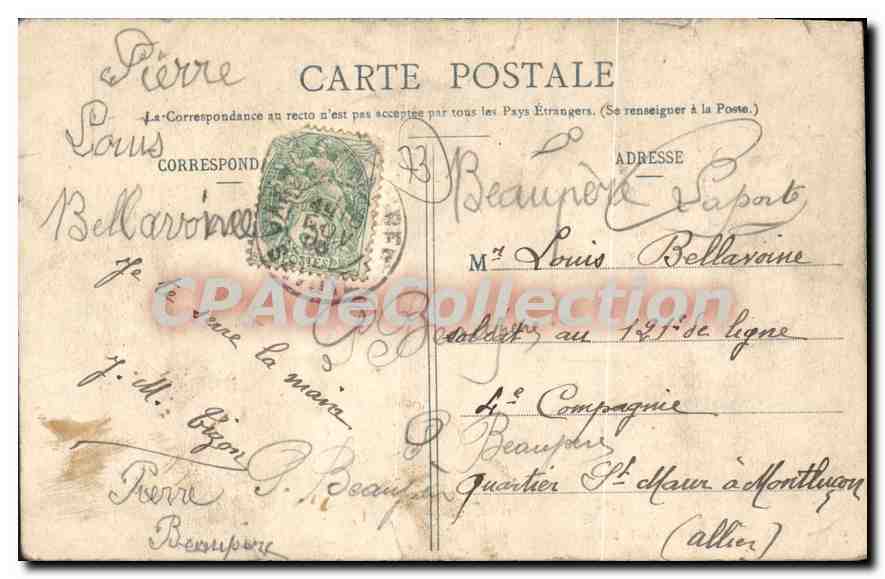 Pierre
CARTE POSTALE
La Correspondance au recto n'est pas acceptée par tous les Pays Étrangers. (Se renseigner à la Poste.)
Louis
CORRESPOND
ADRESSE
73
Beaupère Laporte
Bellavoine
Mr Louis Bellavoine
Je te serre la main
CPAdeCollection
soldat au 121e de ligne
P. Beaupère
J. M. Tizon
4e Compagnie
P. Beaupère
Beaupère
Quartier St Maur à Montluçon
Pierre
Beaupère
(allier)